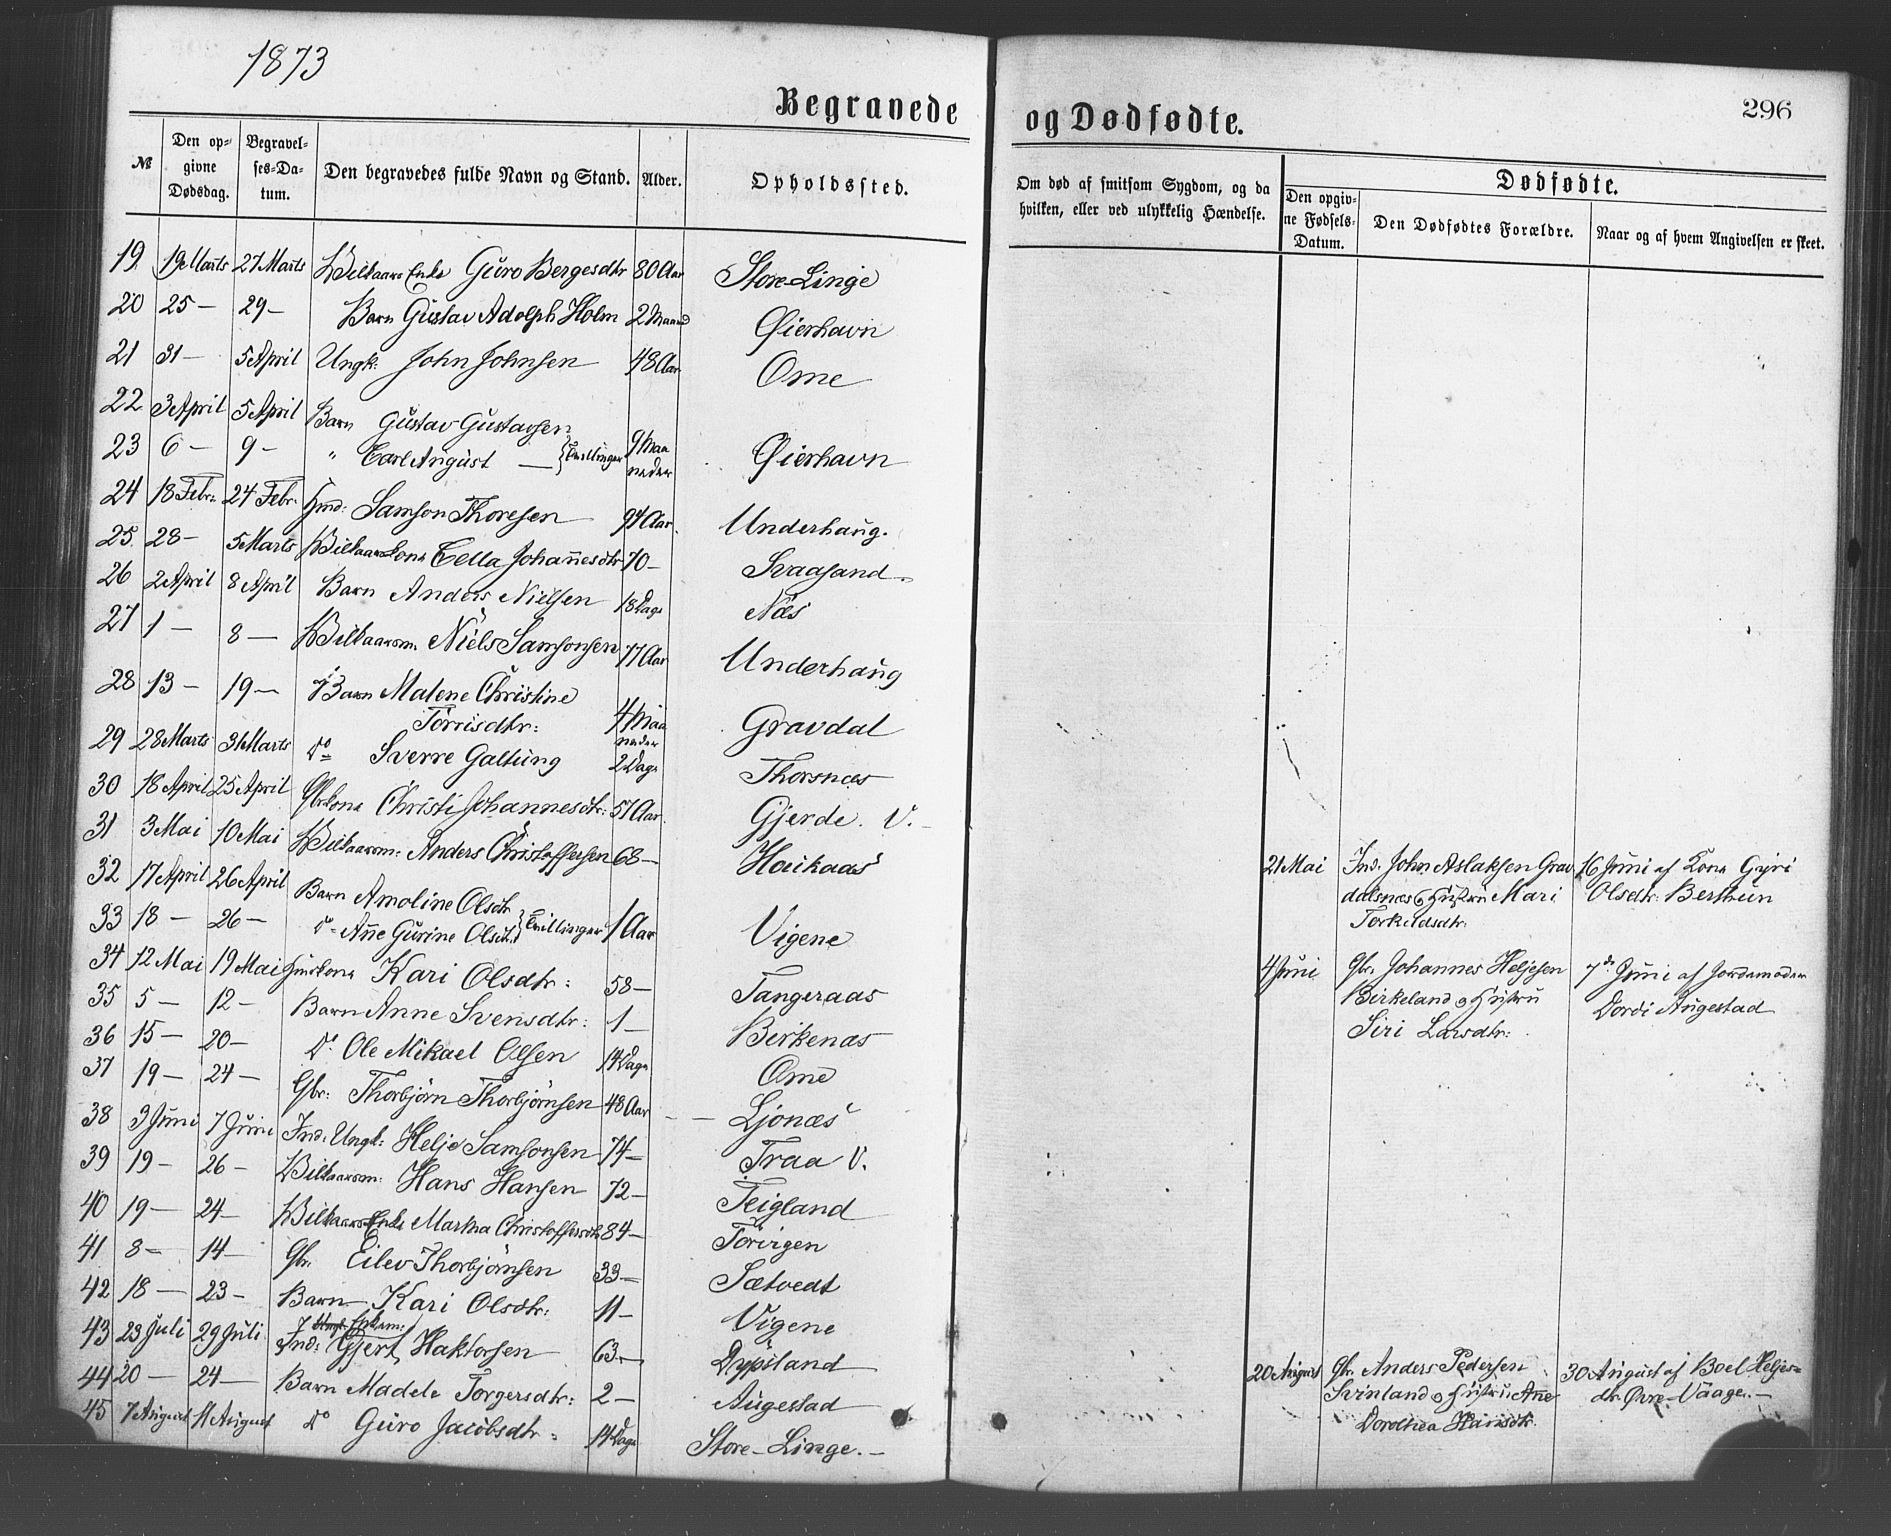 1873
Begravede og Dødfødte.
296
№ Den opgivne Dødsdag. Begravelses-Datum. Den begravedes fulde Navn og Stand. Alder. Opholdssted.
Om død af smitsom Sygdom, og da hvilken, eller ved ulykkelig Hændelse.
Dødfødte.
Den opgivne Fødsels-Datum. Den Dødfødtes Forældre. Naar og af hvem Angivelsen er skeet.
19. 19 Marts 27 Marts Vilkaars Enke Guro Bergesdtr 80 Aar Store-Linge
20 25 — 29 — Barn Gustav Adolph Holm 2 Maand Øierhavn
21 31 — 5 April Ungk: John Johnsen 48 Aar Ome
22 3 April 5 April Barn Gustav Gustavsen
23 6 — 9 — " Carl August — } Tvillinger 9 Maaneder Øierhavn
24 18 Febr: 24 Febr: Hmd: Samson Thoresen 94 Aar. Underhaug.
25. 28 — 5 Marts Vilkaarskone Cella Johannesdtr 70 — Svaasand
26 2 April 8 April Barn Anders Nielsen 18 Dage Næs
27 1 — 8 — Vilkaarsm. Niels Samsonsen 77 Aar Underhaug
28 13 — 19 — Barn Malene Christine
Torrisdtr: 4 Maaneder Gravdal
29 28 Marts 31 Marts Do Sverre Galtung 2 Dage Thorsnæs
30 18 April 25 April Gbrkone Christi Johannesdtr: 57 Aar. Gjerde. V. —
31 3 Mai 10 Mai Vilkaarsm: Anders Christoffersen 68 — Haukaas
32 17 April 26 April Barn Amoline Olsdtr
33 18 — 26 — Do Ane Gurine Olsdt. } Tvillinger 1 Aar Vigene
34 12 Mai 19 Mai Huuskone Kari Olsdtr: 58 — Tangeraas
35 5 — 12 — Barn Anne Svensdtr: 1 — Berkenæs
36 15 — 20 — Do Ole Mikael Olsen 14 Dage Ome
37 19 — 24 — Gbr: Thorbjörn Thorbjörnsen 48 Aar — — Ljonæs
38 3 Juni 7 Juni Ind: Ungk: Helje Samsonsen 74 — Traa V.
39 19 — 26 — Vilkaarsm: Hans Hansen 72 — Teigland
40 19 — 24 — Vilkaars Enke Martha Christoffersdtr 84 — Torvigen
41 8 — 14 — Gbr. Eilev Thorbjörnsen 33 — Sætvedt
42 18 — 23 — Barn Kari Olsdtr: 11 — Vigene
43 23 Juli 29 Juli. Ind: Enkem: Gjert Haktorsen 63 — Dypsland
44 20 — 24 — Barn Madele Torgersdtr: 2 — Augestad
45 7 August 11 August Do Guro Jacobsdtr. 14 Dage Store-Linge. —
21 Mai Ind. John Aslaksen Grav 16 Juni af Kone Gyri
dalsnæs & Hustru Mari Olsdtr: Berthun
Torkildsdtr.
4 Juni Gbr. Johannes Heljesen 7de Juni af Jordemoder
Birkeland & Hustru Dordi Augestad
Siri Larsdtr:
20 August Gbr. Anders Pedersen 30 August af Boel Heljes-
Svinland & Hustru Ane dtr. Øvre-Vaage. —
Dorothea Hansdtr.